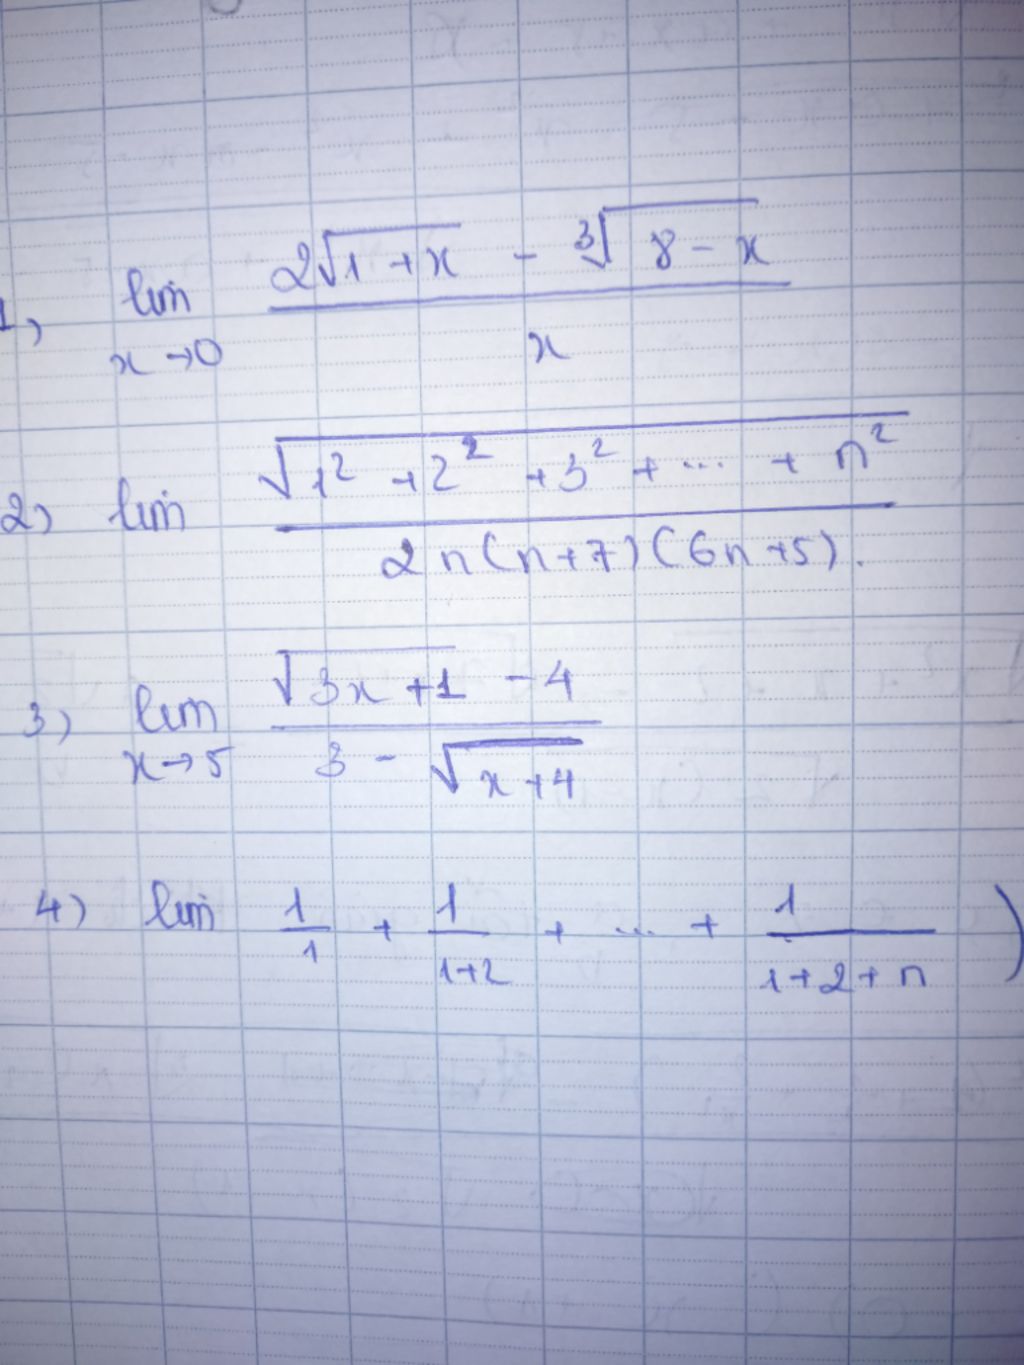 1) lim x→0 (2√(1+x) - ³√(8-x)) / x
2) lim √(1² + 2² + 3² + ... + n²) / 2n(n+7)(6n+5).
3) lim x→5 (√(3x+1) - 4) / (3 - √(x+4))
4) lim 1/1 + 1/(1+2) + ... + 1/(1+2+n) )